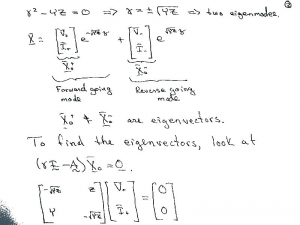 ②
γ² - YZ = 0 ⇒ γ = ± √YZ ⇒ two eigenmodes.
X = [V₊ I₊] e^{-√YZ z} + [V₋ I₋] e^{√YZ z}
X₀⁺ X₀⁻
Forward going mode Reverse going mode
X₀⁺ & X₀⁻ are eigenvectors.
To find the eigenvectors, look at
(γI - A) X₀ = 0.
[-√YZ Z] [V₊] = [0]
[Y -√YZ] [I₊] [0]